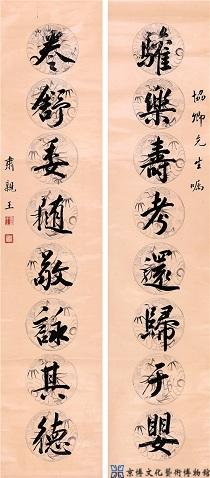 協卿先生囑
驩樂壽考還歸于嬰
卷舒委隨敬詠其德
肅親王
京博文化藝術博物館